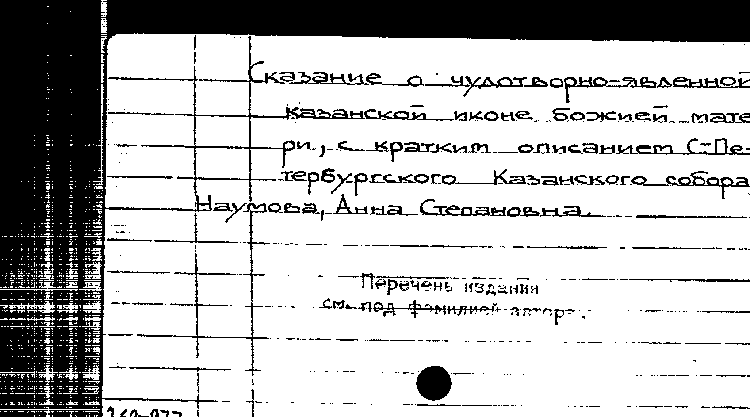 Сказание о чудотворно-явленной
казанской иконе божией мате
ри, с кратким описанием С-Пе-
тербургского Казанского собора
Наумова, Анна Степановна.
Перечень издания
см. под фамилией автора.